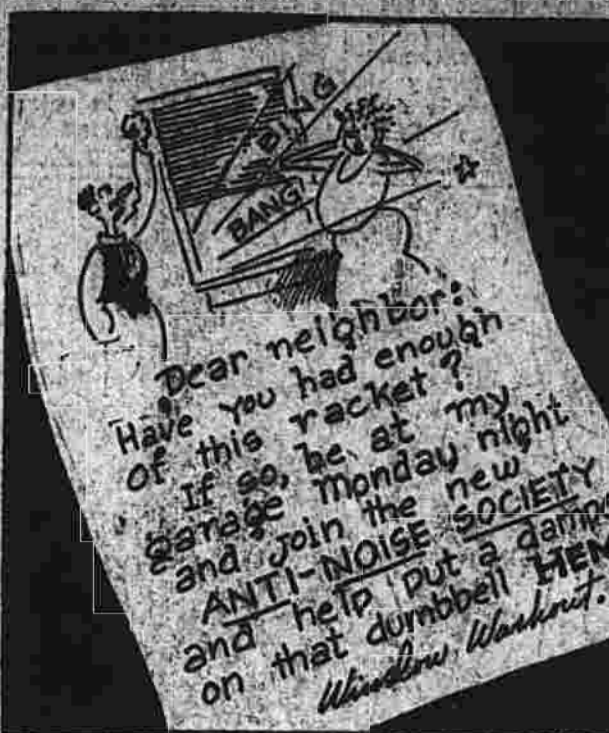 BING
BANG!
Dear neighbor:
Have you had enough
of this racket?
If so, be at my
garage Monday night
and join the new
ANTI-NOISE SOCIETY
and help put a damp
on that dumbbell HEN
Winslow